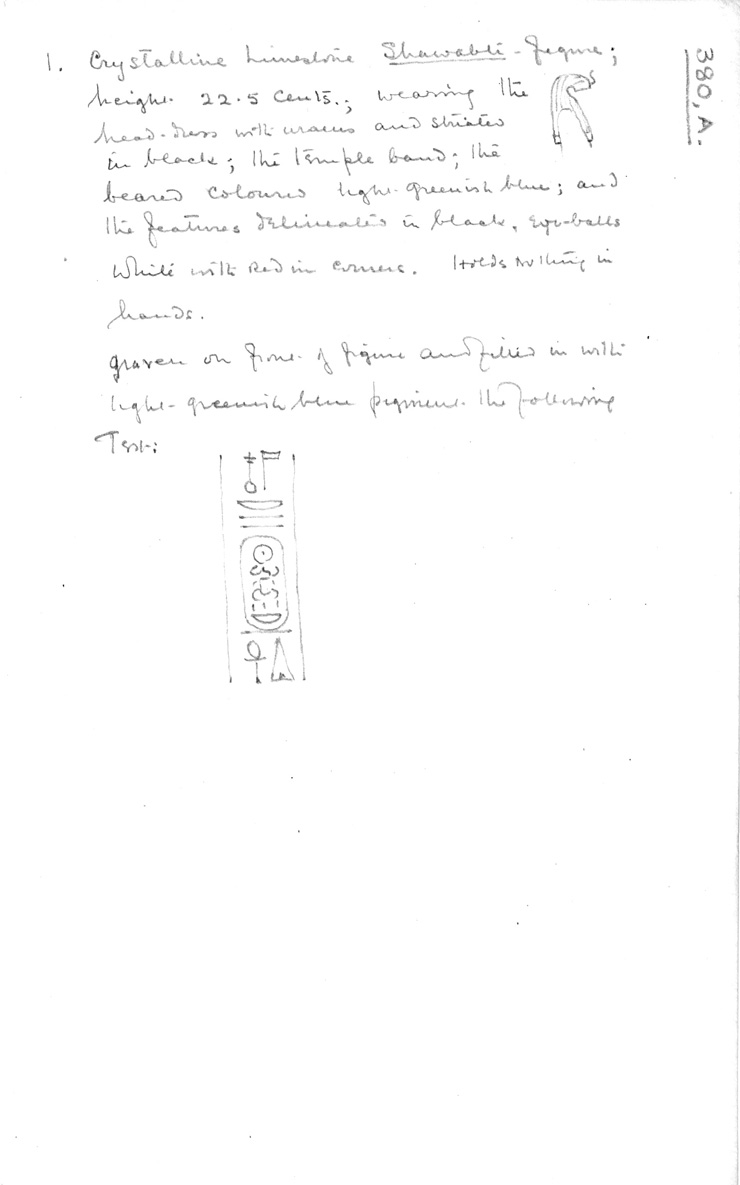 380, A.
1. Crystalline Limestone Shawabti-figure;
height. 22.5 cents.; wearing the
head-dress with uraeus and striated
in black; the temple band; the
beared coloured light-greenish blue; and
the features delineated in black. Eye-balls
White with Red in corners. Holds nothing in
hands.
graven on front of figure and filled in with
light-greenish blue pigment the following
Text: